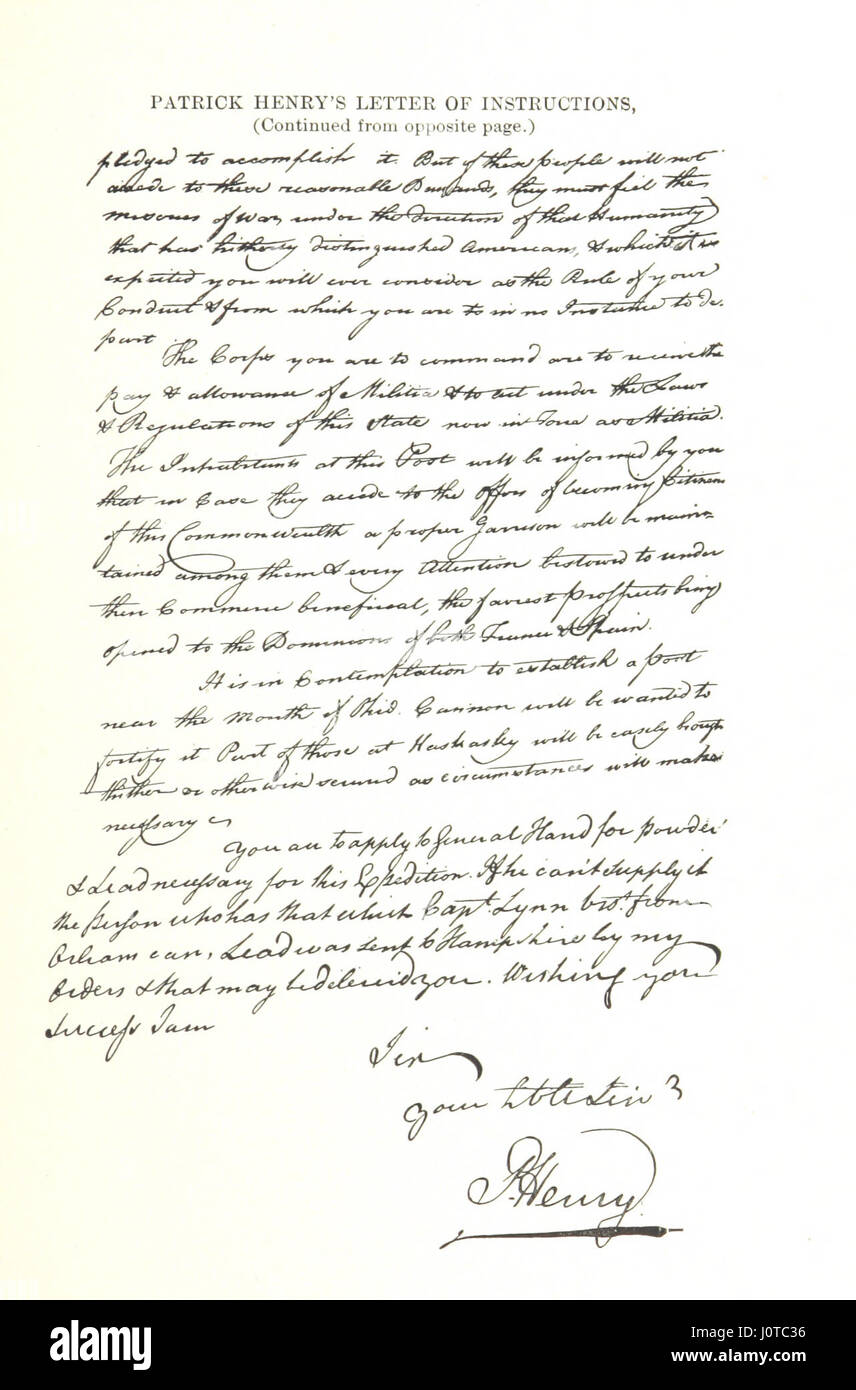 PATRICK HENRY'S LETTER OF INSTRUCTIONS,
(Continued from opposite page.)
pledged to accomplish it. But if these people will not
accede to these reasonable Demands, they must feel the
miseries of War, under the direction of that Humanity
that has hitherto distinguished Americans, & which it is
expected you will ever consider as the Rule of your
Conduct & from which you are to in no Instance to de.
part
The Corps you are to command are to receive the
pay & allowance of Militia & to act under the Laws
& Regulations of this State now in Force as Militia.
The Inhabitants at this Post will be informed by you
that in Case they accede to the offers of becoming Citizens
of this Commonwealth a proper Garrison will be main=
tained among them & every Attention bestowed to render
their Commerce beneficial, the fairest Prospects being
opened to the Dominions of both France & Spain.
It is in Contemplation to establish a post
near the Mouth of Ohio. Cannon will be wanted to
fortify it Part of those at Kaskasky will be easily brought
thither or otherwise secured as circumstances will make
necessary
You are to apply to General Hand for powder
& Lead necessary for this Expedition. If he can't supply it
the person who has that which Capt. Lynn brot. from
Orleans can, Lead was sent to Hampshire by my
Orders & that may be delivered you. Wishing you
success I am
Sir
Your Hble Serv
P. Henry
alamy
Image ID: J0TC36
www.alamy.com